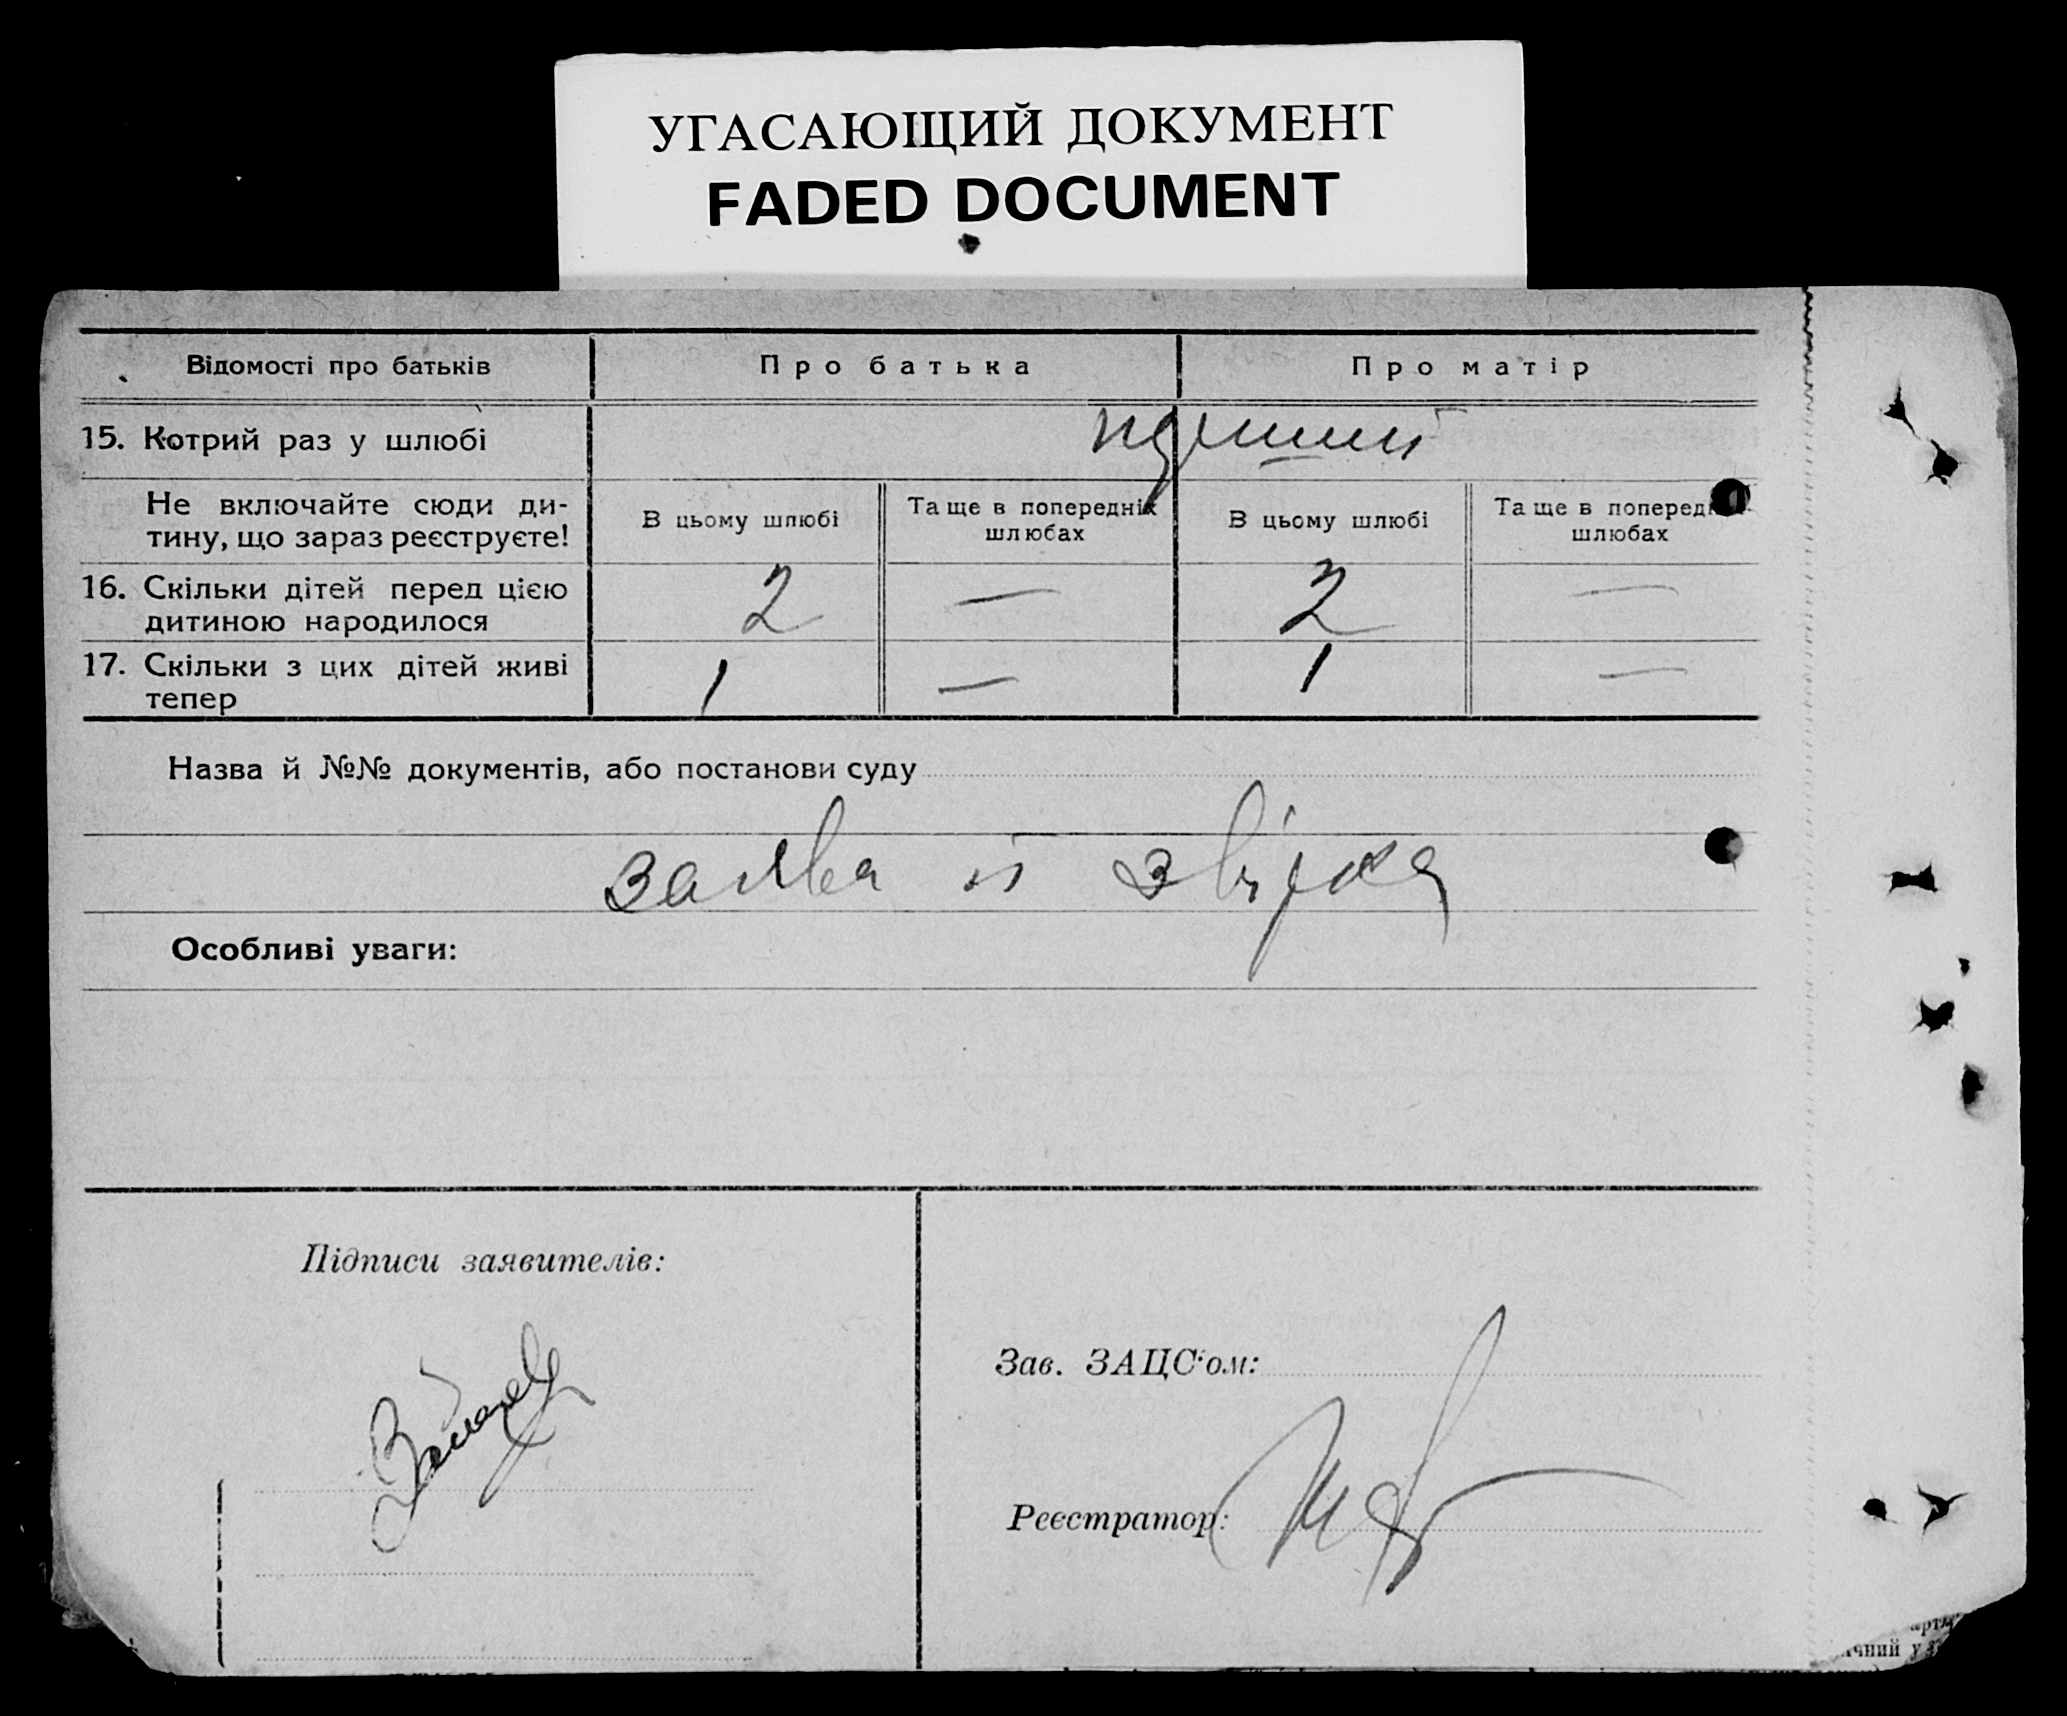 УГАСАЮЩИЙ ДОКУМЕНТ
FADED DOCUMENT
Відомості про батьків
Про батька
Про матір
15. Котрий раз у шлюбі
перший
Не включайте сюди ди-
тину, що зараз реєструєте!
В цьому шлюбі
Та ще в попередніх
шлюбах
В цьому шлюбі
Та ще в поперед
шлюбах
16. Скільки дітей перед цією
дитиною народилося
2 — 2 —
17. Скільки з цих дітей живі
тепер
1 — 1 —
Назва й №№ документів, або постанови суду
заява й звірка
Особливі уваги:
Підписи заявителів:
Зав. ЗАЦС'ом:
Реєстратор: